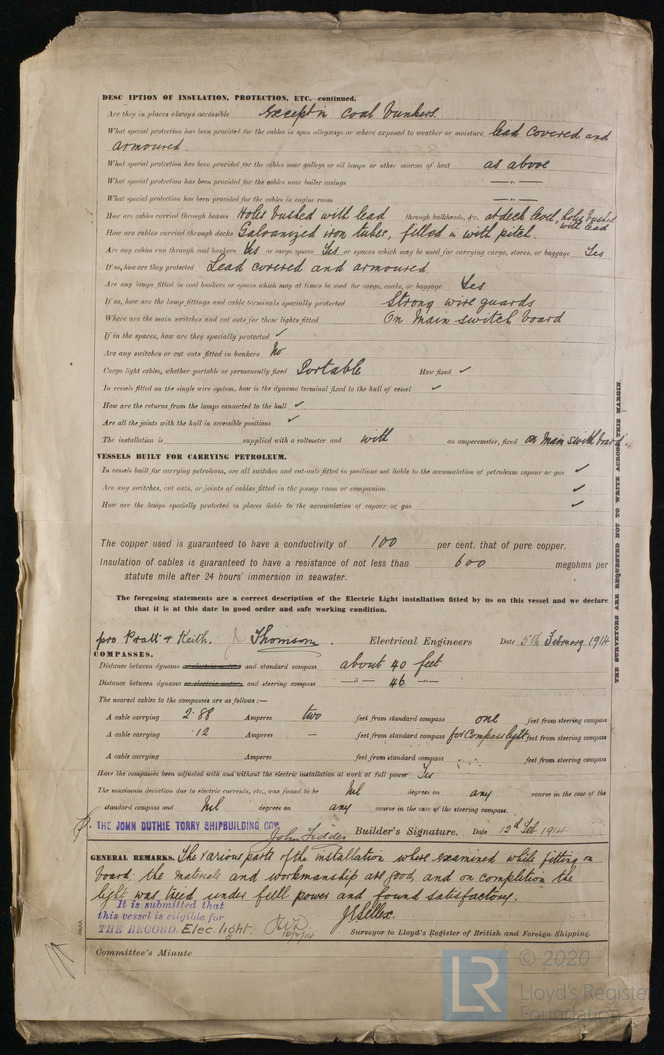 DESC IPTION OF INSULATION, PROTECTION, ETC. continued.
Are they in places always accessible Except in coal bunkers.
What special protection has been provided for the cables in open alleyways or where exposed to weather or moisture lead covered and
armoured.
What special protection has been provided for the cables near galleys or oil lamps or other sources of heat as above
What special protection has been provided for the cables near boiler casings — " —
What special protection has been provided for the cables in engine room — " —
How are cables carried through beams Holes bushed with lead through bulkheads, &c. at deck level, holes bushed with lead
How are cables carried through decks Galvanized iron tubes, filled in with pitch.
Are any cables run through coal bunkers Yes or cargo spaces Yes or spaces which may be used for carrying cargo, stores, or baggage Yes
If so, how are they protected Lead covered and armoured
Are any lamps fitted in coal bunkers or spaces which may at times be used for cargo, coals, or baggage Yes
If so, how are the lamp fittings and cable terminals specially protected Strong wire guards
Where are the main switches and cut outs for these lights fitted On Main switch board
If in the spaces, how are they specially protected ✓
Are any switches or cut outs fitted in bunkers No
Cargo light cables, whether portable or permanently fixed Portable How fixed ✓
In vessels fitted on the single wire system, how is the dynamo terminal fixed to the hull of vessel ✓
How are the returns from the lamps connected to the hull ✓
Are all the joints with the hull in accessible positions ✓
The installation is supplied with a voltmeter and with an amperemeter, fixed on Main switch board.
VESSELS BUILT FOR CARRYING PETROLEUM.
In vessels built for carrying petroleum, are all switches and cut-outs fitted in positions not liable to the accumulation of petroleum vapour or gas ✓
Are any switches, cut outs, or joints of cables fitted in the pump room or companion ✓
How are the lamps specially protected in places liable to the accumulation of vapour or gas ✓
The copper used is guaranteed to have a conductivity of 100 per cent. that of pure copper.
Insulation of cables is guaranteed to have a resistance of not less than 600 megohms per
statute mile after 24 hours' immersion in seawater.
The foregoing statements are a correct description of the Electric Light installation fitted by us on this vessel and we declare
that it is at this date in good order and safe working condition.
pro Pratt & Keith. J Thomson. Electrical Engineers Date 5th February 1914
COMPASSES.
Distance between dynamo or electric motors and standard compass about 40 feet
Distance between dynamo or electric motors and steering compass — " — 46 — " —
The nearest cables to the compasses are as follows:—
A cable carrying 2.88 Amperes two feet from standard compass one feet from steering compass
A cable carrying .12 Amperes — feet from standard compass for Compass light feet from steering compass
A cable carrying Amperes feet from standard compass feet from steering compass
Have the compasses been adjusted with and without the electric installation at work at full power Yes
The maximum deviation due to electric currents, etc., was found to be Nil degrees on any course in the case of the
standard compass and Nil degrees on any course in the case of the steering compass.
THE JOHN DUTHIE TORRY SHIPBUILDING COY
John Fiddes Builder's Signature. Date 12th Feb. 1914
GENERAL REMARKS. The various parts of the installation where examined while fitting on
board, the materials and workmanship are good, and on completion the
light was tried under full power and found satisfactory.
It is submitted that
this vessel is eligible for
THE RECORD. Elec. light.
Surveyor to Lloyd's Register of British and Foreign Shipping.
Committee's Minute
THE SURVEYORS ARE REQUESTED NOT TO WRITE ACROSS THIS MARGIN.
LR © 2020
Lloyd's Register
Foundation